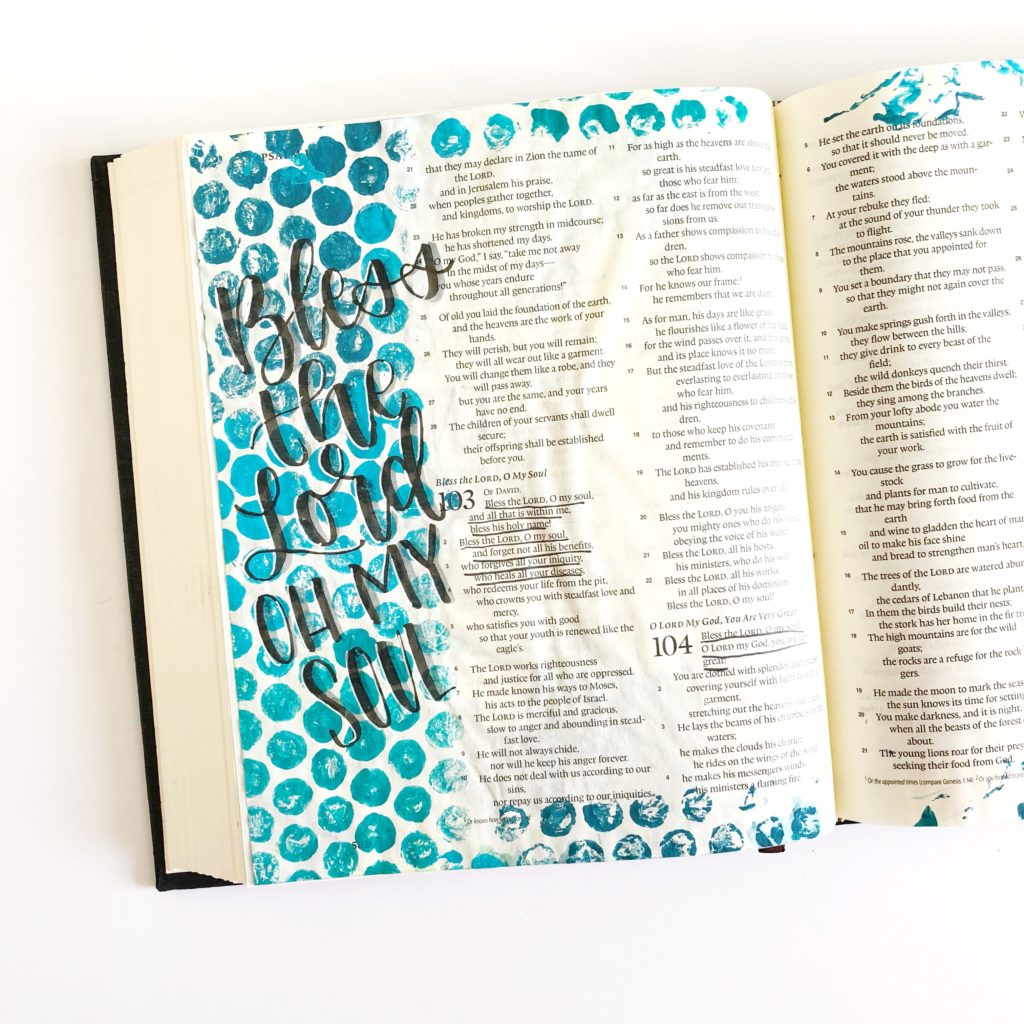 PSAL
Bless
the
Lord
OH MY
SOUL
21 that they may declare in Zion the name of
the LORD,
and in Jerusalem his praise,
22 when peoples gather together,
and kingdoms, to worship the LORD.
23 He has broken my strength in midcourse;
he has shortened my days.
my God," I say, "take me not away
in the midst of my days—
you whose years endure
throughout all generations!"
25 Of old you laid the foundation of the earth,
and the heavens are the work of your
hands.
26 They will perish, but you will remain;
they will all wear out like a garment.
You will change them like a robe, and they
will pass away,
27 but you are the same, and your years
have no end.
28 The children of your servants shall dwell
secure;
their offspring shall be established
before you.
Bless the LORD, O My Soul
103 OF DAVID.
Bless the LORD, O my soul,
and all that is within me,
bless his holy name!
2 Bless the LORD, O my soul,
and forget not all his benefits,
3 who forgives all your iniquity,
who heals all your diseases,
4 who redeems your life from the pit,
who crowns you with steadfast love and
mercy,
5 who satisfies you with good
so that your youth is renewed like the
eagle's.
6 The LORD works righteousness
and justice for all who are oppressed.
7 He made known his ways to Moses,
his acts to the people of Israel.
The LORD is merciful and gracious,
slow to anger and abounding in stead-
fast love.
9 He will not always chide,
nor will he keep his anger forever.
10 He does not deal with us according to our
sins,
nor repay us according to our iniquities.
11 For as high as the heavens are above the
earth,
so great is his steadfast love
those who fear him;
12 as far as the east is from the west,
so far does he remove our
sions from us.
13 As a father shows compassion to
dren,
so the LORD shows compassion
who fear him.
14 For he knows our frame;
he remembers that we are dust.
15 As for man, his days are like grass;
he flourishes like a flower of the
16 for the wind passes over it, and
and its place knows it no more.
17 But the steadfast love of the LORD is
everlasting to everlasting on those
who fear him,
and his righteousness to children's
dren,
18 to those who keep his covenant
and remember to do his command-
ments.
19 The LORD has established his
heavens,
and his kingdom rules over
20 Bless the LORD, O you his angels,
you mighty ones who do his
obeying the voice of his
21 Bless the LORD, all his hosts,
his ministers, who do his will!
22 Bless the LORD, all his works,
in all places of his dominion.
Bless the LORD, O my soul!
O LORD My God, You Are Very Great
104 Bless the LORD, O my soul!
O LORD my God, you are
great!
You are clothed with splendor and
2 covering yourself with light
garment,
stretching out the heavens like
3 He lays the beams of his chambers
waters;
he makes the clouds his chariot;
he rides on the wings of the wind;
4 he makes his messengers winds,
his ministers a flaming fire.
5 He set the earth on its foundations,
so that it should never be moved.
6 You covered it with the deep as with a gar-
ment;
the waters stood above the moun-
tains.
7 At your rebuke they fled;
at the sound of your thunder they took
to flight.
8 The mountains rose, the valleys sank down
to the place that you appointed for
them.
9 You set a boundary that they may not pass,
so that they might not again cover the
earth.
10 You make springs gush forth in the valleys;
they flow between the hills;
11 they give drink to every beast of the
field;
the wild donkeys quench their thirst.
12 Beside them the birds of the heavens dwell;
they sing among the branches.
13 From your lofty abode you water the
mountains;
the earth is satisfied with the fruit of
your work.
14 You cause the grass to grow for the live-
stock
and plants for man to cultivate,
that he may bring forth food from the
earth
15 and wine to gladden the heart of man,
oil to make his face shine
and bread to strengthen man's heart.
16 The trees of the LORD are watered abun-
dantly,
the cedars of Lebanon that he planted
17 In them the birds build their nests;
the stork has her home in the fir
18 The high mountains are for the wild
goats;
the rocks are a refuge for the rock
gers.
19 He made the moon to mark the
the sun knows its time for setting
20 You make darkness, and it is night,
when all the beasts of the forest
about.
21 The young lions roar for their prey
seeking their food from God.
1 Or the appointed times (compare Genesis 1:14)
22
23
24